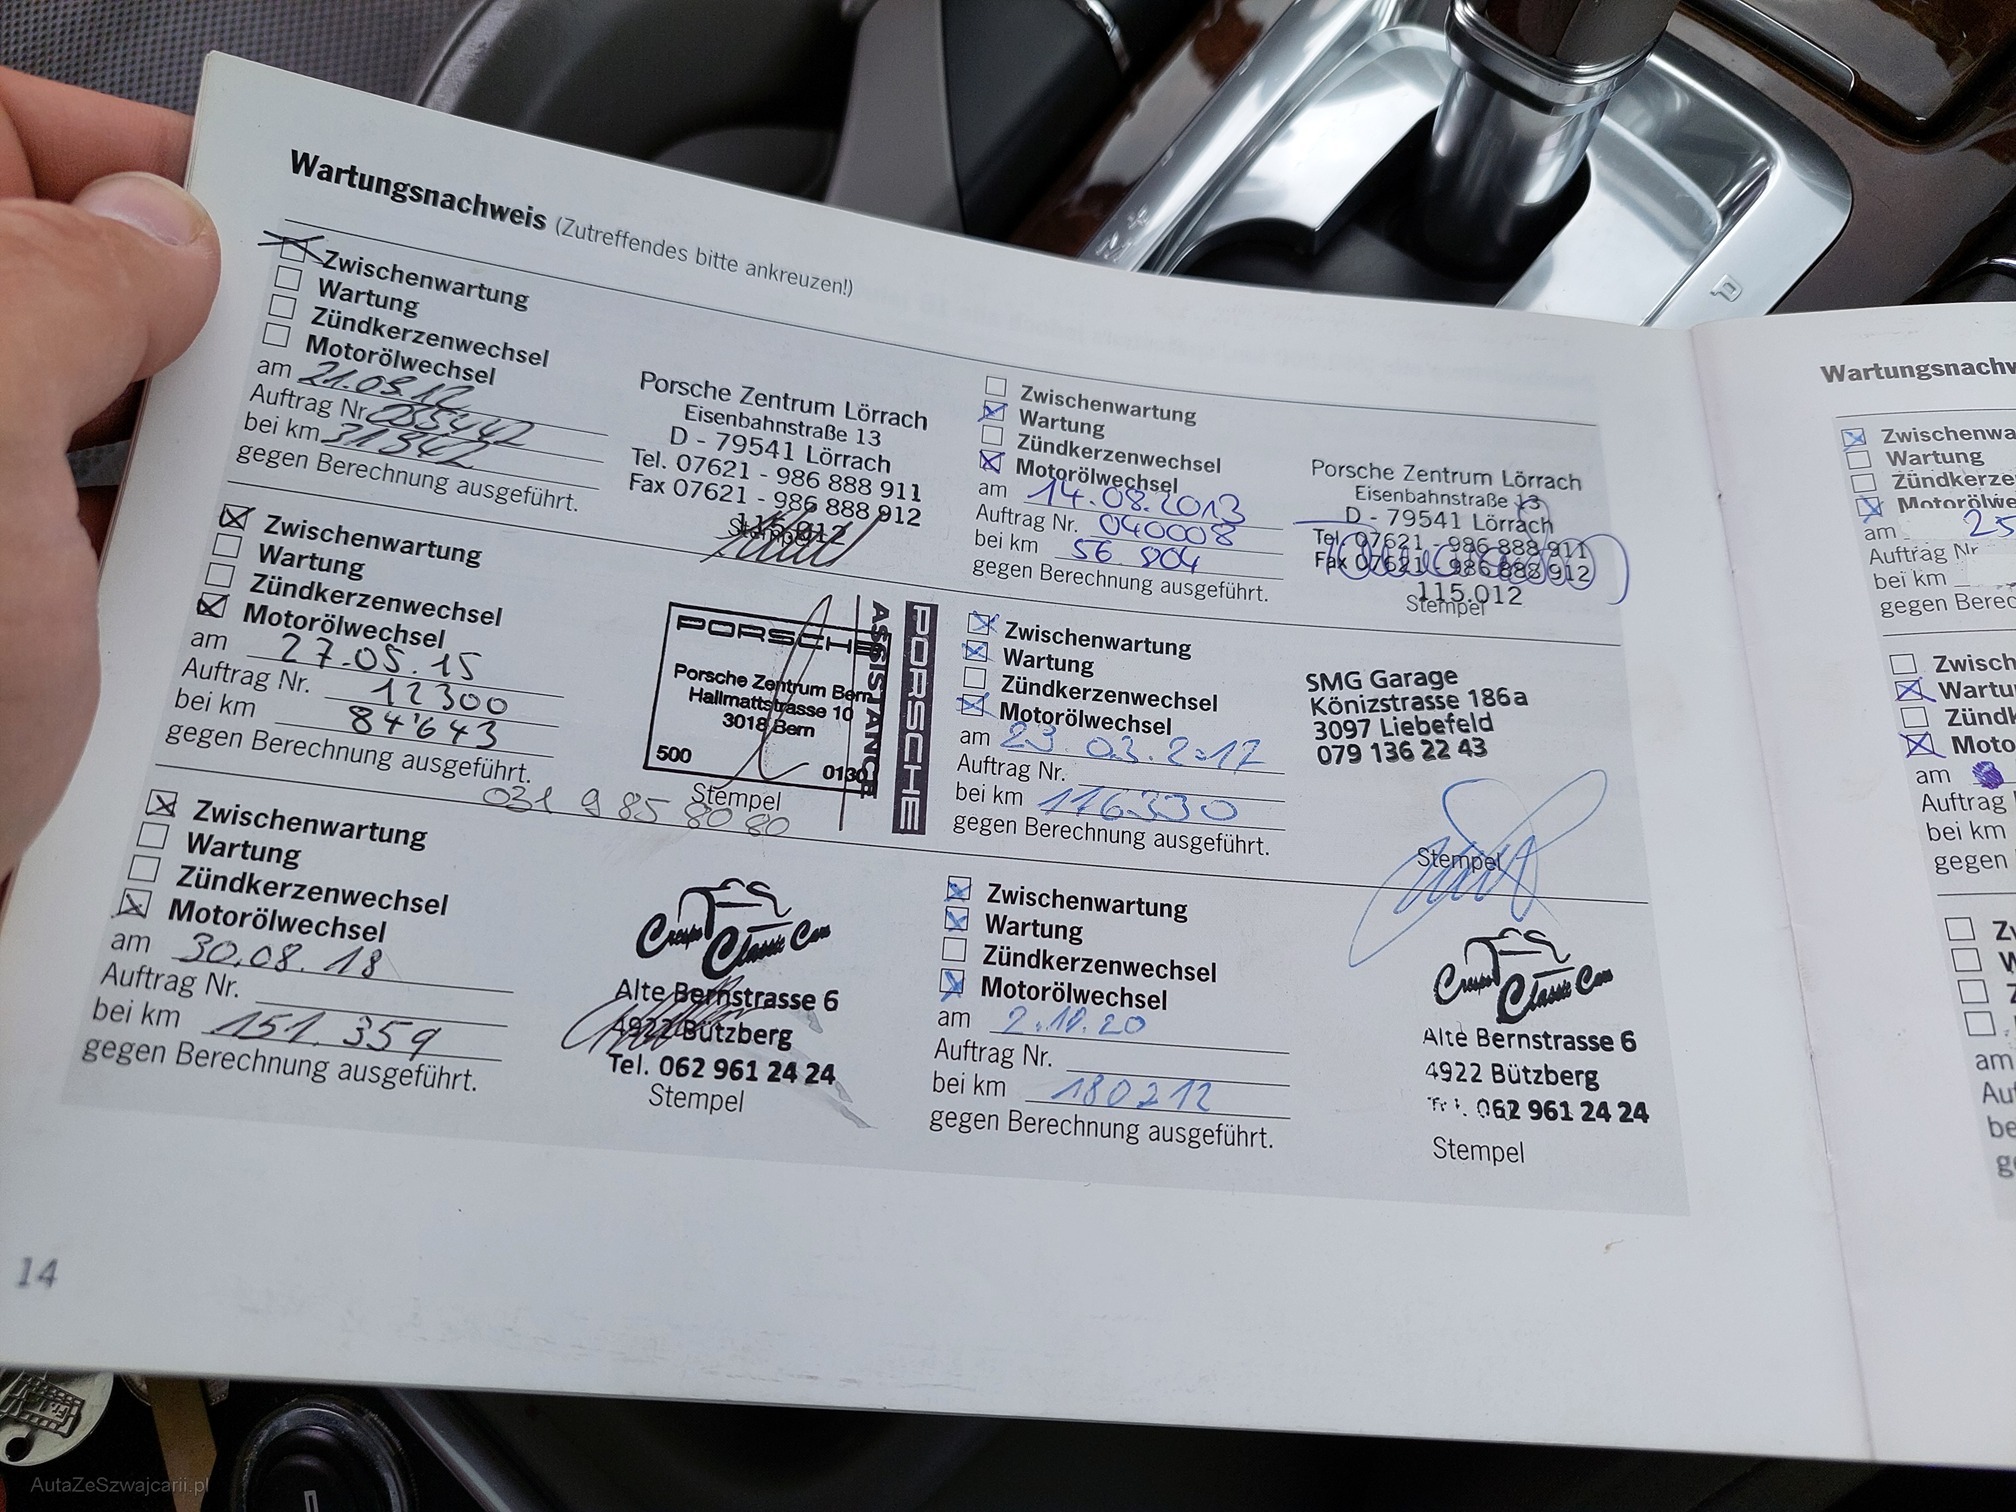 Wartungsnachweis (Zutreffendes bitte ankreuzen!)
Zwischenwartung
Wartung
Zündkerzenwechsel
Motorölwechsel
am
Auftrag Nr.
bei km
gegen Berechnung ausgeführt.
Porsche Zentrum Lörrach
Eisenbahnstraße 13
D - 79541 Lörrach
Tel. 07621 - 986 888 911
Fax 07621 - 986 888 912
115.012
Stempel
Zwischenwartung
Wartung
Zündkerzenwechsel
Motorölwechsel
am 14.08.2013
Auftrag Nr. 040008
bei km 56.804
gegen Berechnung ausgeführt.
Porsche Zentrum Lörrach
Eisenbahnstraße 13
D - 79541 Lörrach
Tel. 07621 - 986 888 911
Fax 07621 - 986 888 912
115.012
Stempel
Zwischenwartung
Wartung
Zündkerzenwechsel
Motorölwechsel
am 27.05.15
Auftrag Nr. 12300
bei km 84'643
gegen Berechnung ausgeführt.
PORSCHE
Porsche Zentrum Bern
Hallmattstrasse 10
3018 Bern
500 0130
ASSISTANCE
PORSCHE
Stempel
031 985 80 80
Zwischenwartung
Wartung
Zündkerzenwechsel
Motorölwechsel
am 23.03.2017
Auftrag Nr.
bei km 116330
gegen Berechnung ausgeführt.
SMG Garage
Könizstrasse 186a
3097 Liebefeld
079 136 22 43
Stempel
Zwischenwartung
Wartung
Zündkerzenwechsel
Motorölwechsel
am 30.08.18
Auftrag Nr.
bei km 151.359
gegen Berechnung ausgeführt.
Classic Cars
Alte Bernstrasse 6
4922 Bützberg
Tel. 062 961 24 24
Stempel
Zwischenwartung
Wartung
Zündkerzenwechsel
Motorölwechsel
am 2.10.20
Auftrag Nr.
bei km 180212
gegen Berechnung ausgeführt.
Classic Cars
Alte Bernstrasse 6
4922 Bützberg
Tel. 062 961 24 24
Stempel
14
Wartungsnachw
Zwischenwa
Wartung
Zündkerze
Motorölwe
am 25
Auftrag Nr
bei km
gegen Berec
Zwisch
Wartu
Zündk
Moto
am
Auftrag
bei km
gegen
Zw
W
Z
am
Au
be
ge
AutaZeSzwajcarii.pl